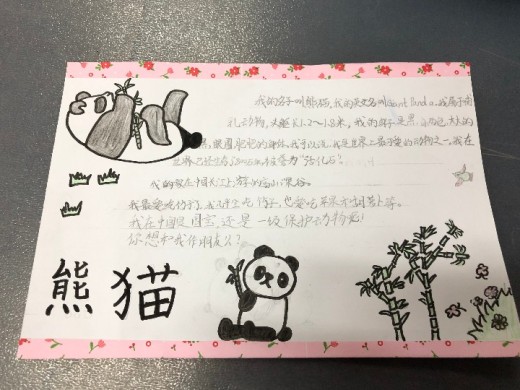 我的名字叫熊猫,我的英文名叫Giant Panda,我属于哺
乳动物,大概长1.2~1.8米。我的样子是黑白相间,大大的
黑眼圈,肥肥的身体。我可以说是世界上最可爱的动物之一。我在
世界已经生存 被誉为“活化石”。
我的家在中国长江上游的高山深谷。
我最爱吃竹子了,我除了吃竹子,也爱吃苹果和胡萝卜等。
我在中国是国宝,还是一级保护动物呢!
你想和我作朋友么?
熊猫